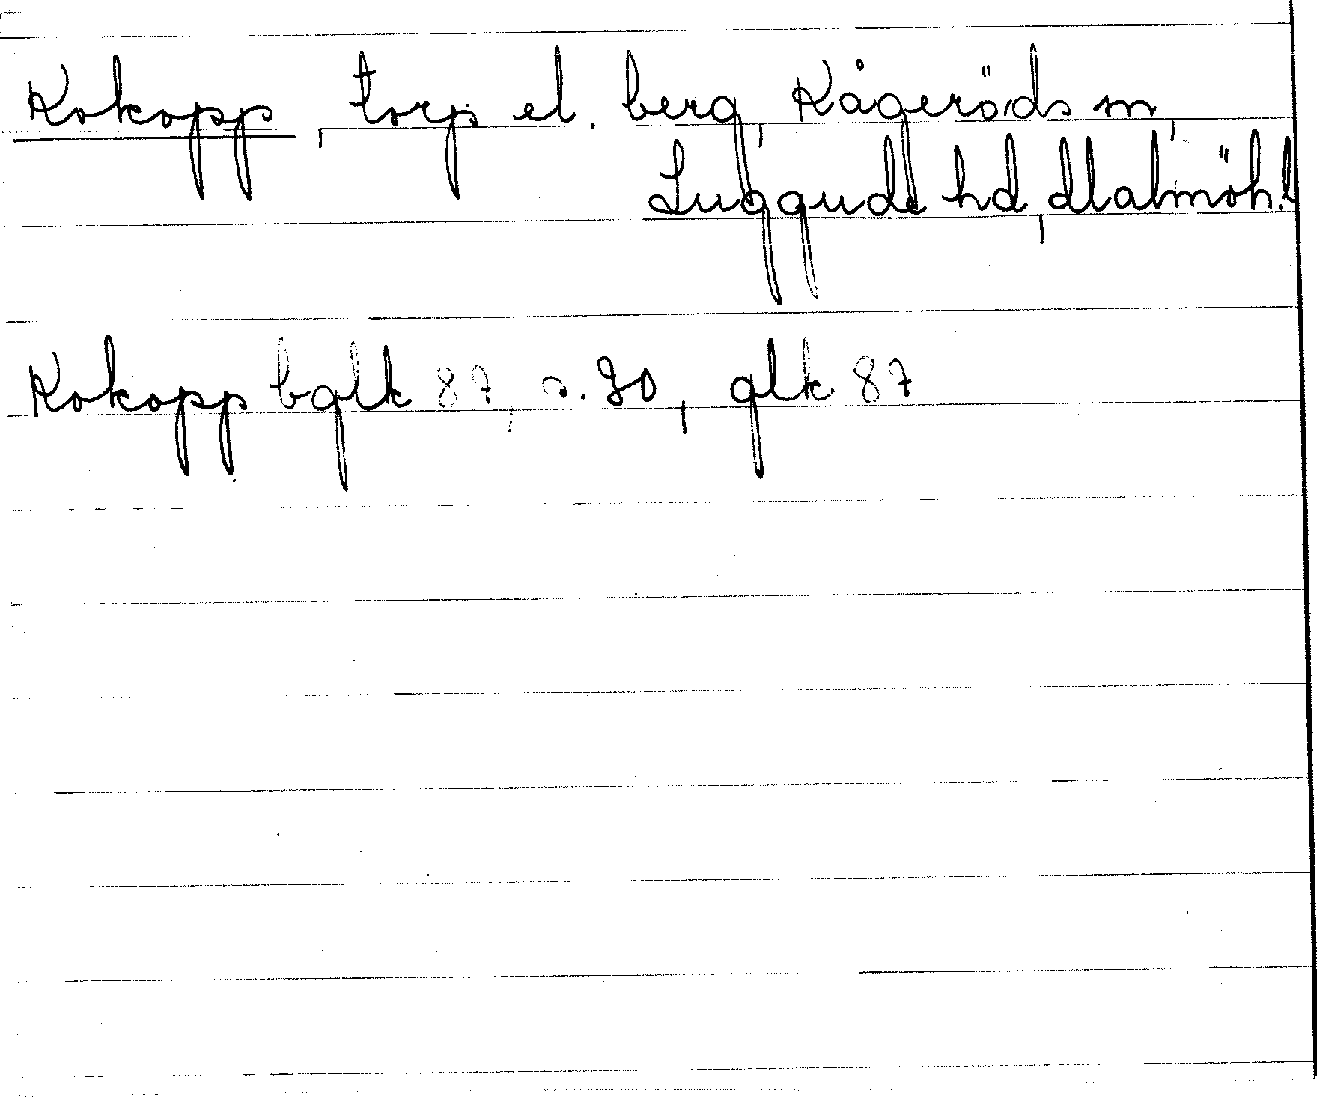 Kokopp, torp el. berg, Kågeröds sn,
Luggude hd, Malmöh. l
Kokopp bglk 87, s. 30, glk 87